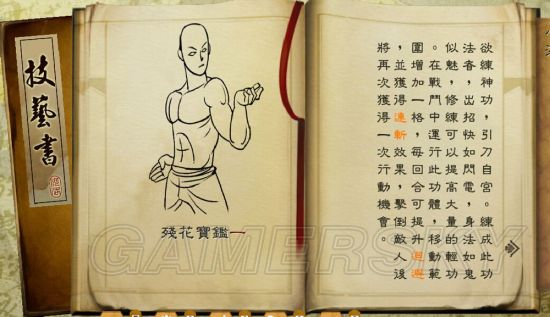 技藝書
殘花寶鑑一
欲練神功，引刀自宮。練成此功
法者，出招快如閃電，身法如鬼
似魅，修練可以提高大量的輕功
。在戰鬥中運行此功體，移動範
圍增加一格，每回合可提升迴避
，並獲得連斬效果，擊倒敵人後
將再次獲得一次行動機會。
GAMERSKY